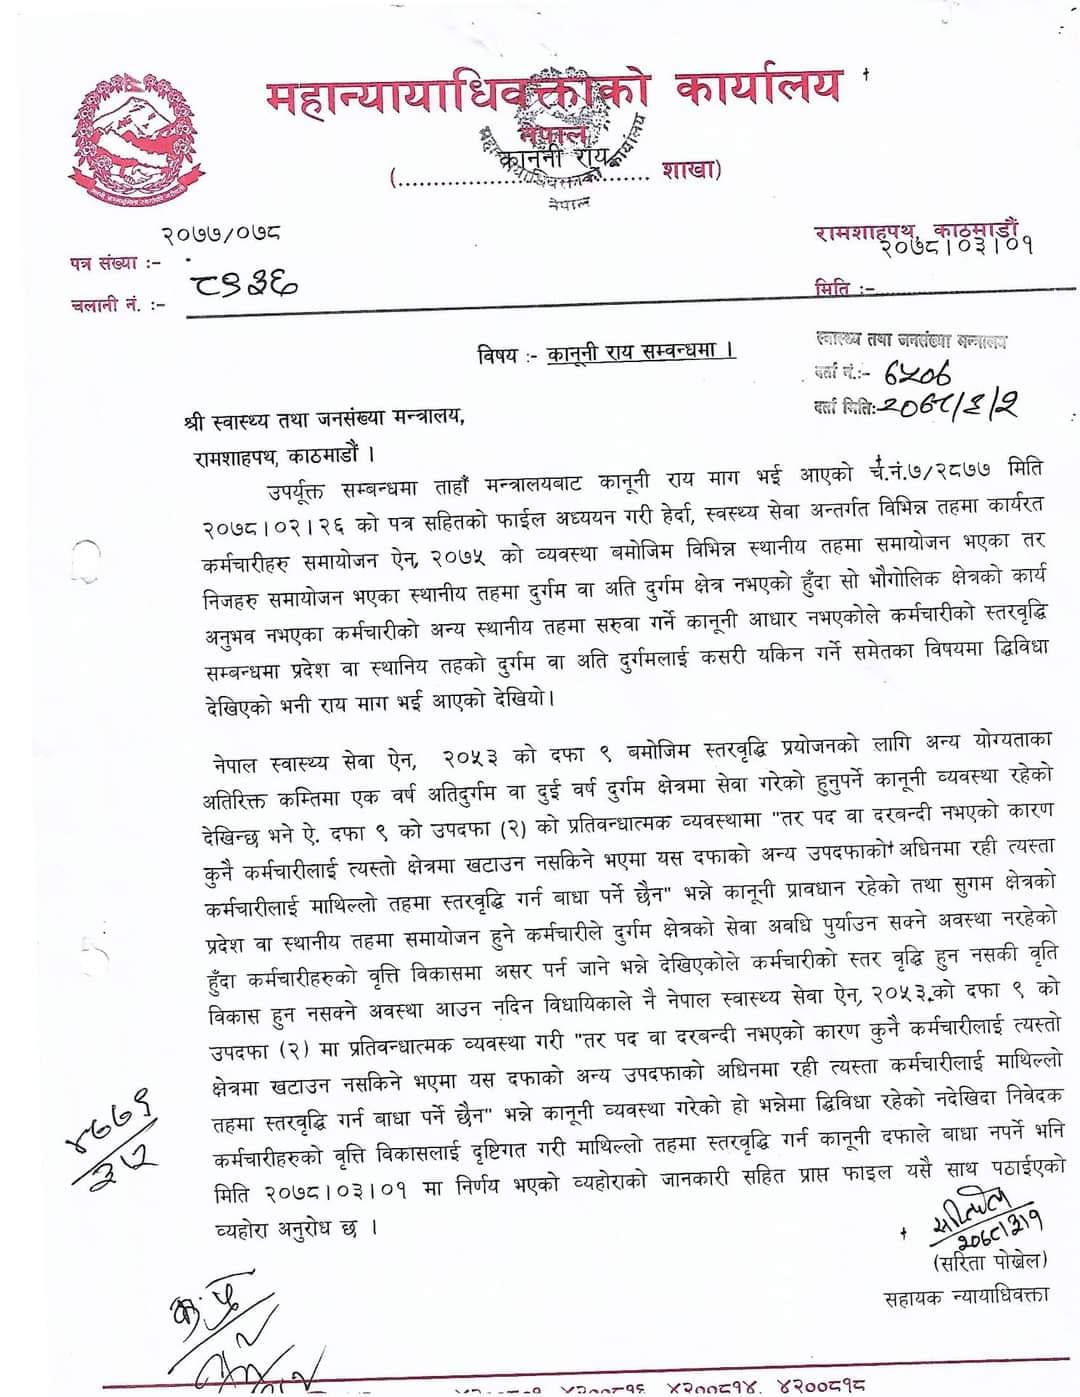 महान्यायाधिवक्ताको कार्यालय
नेपाल
कानूनी राय
(........................................ शाखा)
महान्यायाधिवक्ताको कार्यालय
नेपाल
रामशाहपथ, काठमाडौं
२०७७/०७८
२०७८।०३।०१
पत्र संख्या :-
चलानी नं. :- ८९३६
मिति :-
विषय :- कानूनी राय सम्वन्धमा ।
स्वास्थ्य तथा जनसंख्या मन्त्रालय
दर्ता नं.:- ६५०६
दर्ता मिति:- २०७८/३/२
श्री स्वास्थ्य तथा जनसंख्या मन्त्रालय,
रामशाहपथ, काठमाडौं ।
उपर्यूक्त सम्बन्धमा ताहाँ मन्त्रालयबाट कानूनी राय माग भई आएको च.नं.७/२८७७ मिति
२०७८।०२।२६ को पत्र सहितको फाईल अध्ययन गरी हेर्दा, स्वस्थ्य सेवा अन्तर्गत विभिन्न तहमा कार्यरत
कर्मचारीहरु समायोजन ऐन, २०७५ को व्यवस्था बमोजिम विभिन्न स्थानीय तहमा समायोजन भएका तर
निजहरु समायोजन भएका स्थानीय तहमा दुर्गम वा अति दुर्गम क्षेत्र नभएको हुँदा सो भौगोलिक क्षेत्रको कार्य
अनुभव नभएका कर्मचारीको अन्य स्थानीय तहमा सरुवा गर्ने कानूनी आधार नभएकोले कर्मचारीको स्तरवृद्धि
सम्बन्धमा प्रदेश वा स्थानिय तहको दुर्गम वा अति दुर्गमलाई कसरी यकिन गर्ने समेतका विषयमा द्विविधा
देखिएको भनी राय माग भई आएको देखियो।
नेपाल स्वास्थ्य सेवा ऐन, २०५३ को दफा ९ बमोजिम स्तरवृद्धि प्रयोजनको लागि अन्य योग्यताका
अतिरिक्त कम्तिमा एक वर्ष अतिदुर्गम वा दुई वर्ष दुर्गम क्षेत्रमा सेवा गरेको हुनुपर्ने कानूनी व्यवस्था रहेको
देखिन्छ भने ऐ. दफा ९ को उपदफा (२) को प्रतिवन्धात्मक व्यवस्थामा "तर पद वा दरबन्दी नभएको कारण
कुनै कर्मचारीलाई त्यस्तो क्षेत्रमा खटाउन नसकिने भएमा यस दफाको अन्य उपदफाको अधिनमा रही त्यस्ता
कर्मचारीलाई माथिल्लो तहमा स्तरवृद्धि गर्न बाधा पर्ने छैन" भन्ने कानूनी प्रावधान रहेको तथा सुगम क्षेत्रको
प्रदेश वा स्थानीय तहमा समायोजन हुने कर्मचारीले दुर्गम क्षेत्रको सेवा अवधि पुर्याउन सक्ने अवस्था नरहेको
हुँदा कर्मचारीहरुको वृत्ति विकासमा असर पर्न जाने भन्ने देखिएकोले कर्मचारीको स्तर वृद्धि हुन नसकी वृति
विकास हुन नसक्ने अवस्था आउन नदिन विधायिकाले नै नेपाल स्वास्थ्य सेवा ऐन, २०५३ को दफा ९ को
उपदफा (२) मा प्रतिवन्धात्मक व्यवस्था गरी "तर पद वा दरबन्दी नभएको कारण कुनै कर्मचारीलाई त्यस्तो
क्षेत्रमा खटाउन नसकिने भएमा यस दफाको अन्य उपदफाको अधिनमा रही त्यस्ता कर्मचारीलाई माथिल्लो
तहमा स्तरवृद्धि गर्न बाधा पर्ने छैन" भन्ने कानूनी व्यवस्था गरेको हो भन्नेमा द्विविधा रहेको नदेखिदा निवेदक
कर्मचारीहरुको वृत्ति विकासलाई दृष्टिगत गरी माथिल्लो तहमा स्तरवृद्धि गर्न कानूनी दफाले बाधा नपर्ने भनि
मिति २०७८।०३।०१ मा निर्णय भएको व्यहोराको जानकारी सहित प्राप्त फाइल यसै साथ पठाईएको
व्यहोरा अनुरोध छ ।
२०७८।३।१
(सरिता पोखेल)
सहायक न्यायाधिवक्ता
४२००८१६, ४२००८१४, ४२००८१८